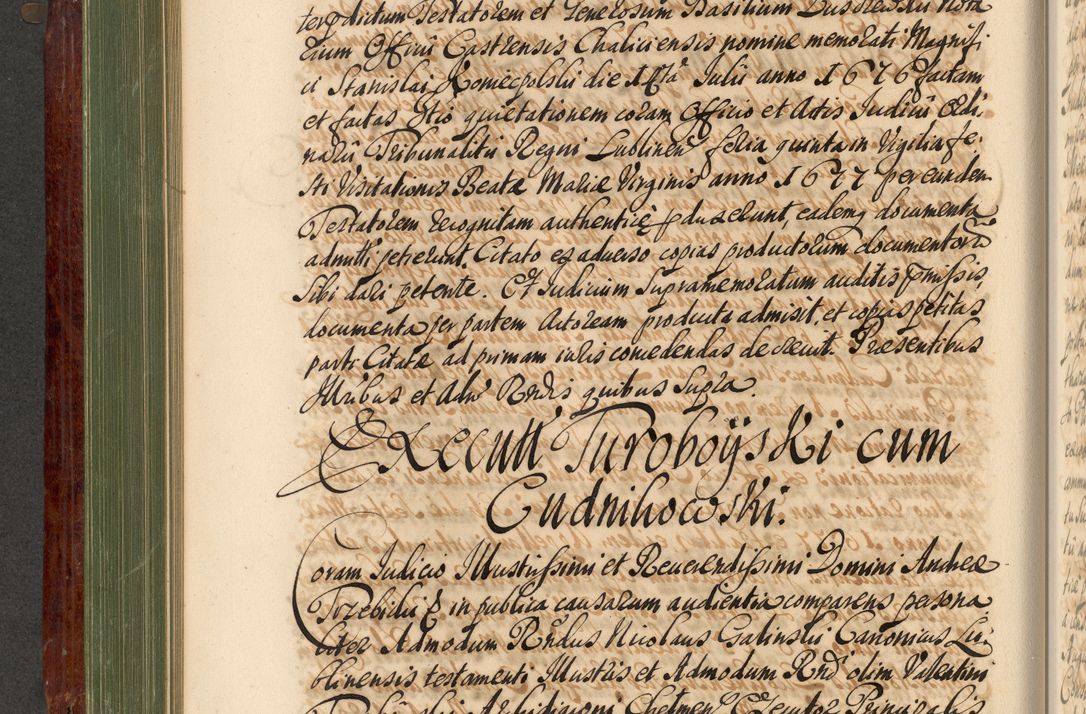 terp dictum Testatorem et Generosum Basilium
rium Officii Castrensis Chaliciensis nomine memorati Magnifi
ci Stanislai Koniecpolskii die 1 Julii anno 1676 factam
et factas Itio quietationem coram Officio et Actis Judicii Ordi,
narii Tribunalitii Regni Lublinen feria quinta in Vigilia fe,
sti Visitationis Beatæ Mariæ Virginis anno 1677 per eunden
Testatorem recognitam authenticè pduxerunt, eademq documenta
admitti petierunt. Citato ex adverso copias productorum documentorũ
sibi dari petente. Et Judicium Supramemoratum auditis pmissis,
documenta per partem Actoream producta admisit, et copias petitas
parti Citatæ ad primam iuris comedendas decrevit. Præsentibus
Illribus et Adm Rndis quibus Supra.
Executt Turoboÿski cum
Cudnikowski.
Coram Judicio Illustrissimi et Reverendissimi Domini Andreæ
Trzebicki & in publica causarum audientia comparens persona
liter Admodum Rndus Nicolaus Galinski Canonicus Lu,
blinensis testamenti Illustris et Admodum Rnd olim Valentini
Archidiaconi Chelmen Executor Principalis